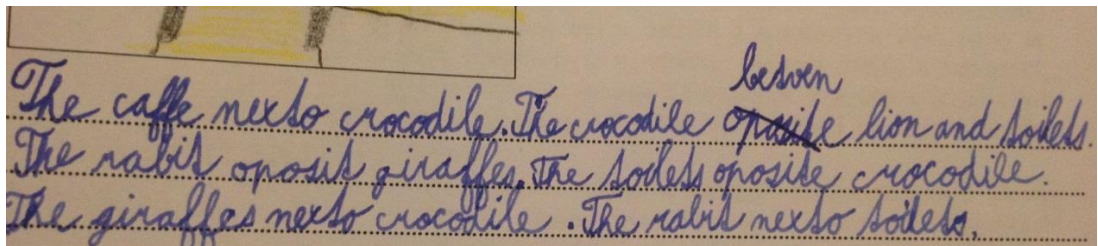 The caffe nexto crocodile. The crocodile betven lion and toilets.
The rabit oposit giraffes. The toilets oposite crocodile.
The giraffes nexto crocodile. The rabit nexto toilets.